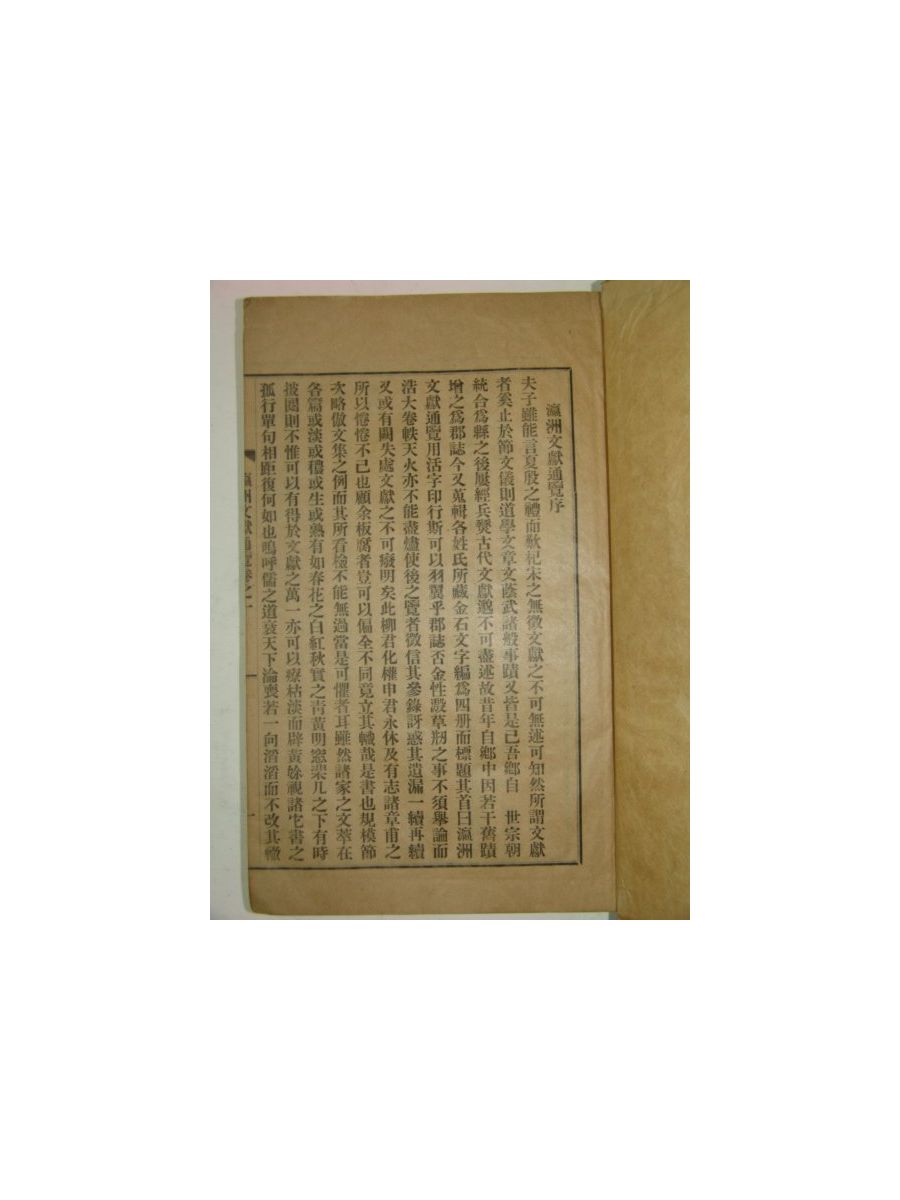 瀛洲文獻通覽序
夫子雖能言夏殷之禮而歎杞宋之無徵文獻之不可無述可知然所謂文獻
者奚止於節文儀則道學文章文蔭武諸般事蹟又皆是已吾鄉自 世宗朝
統合爲縣之後屢經兵燹古代文獻邈不可盡述故昔年自鄉中因若干舊蹟
增之爲郡誌今又蒐輯各姓氏所藏金石文字編爲四册而標題其首曰瀛洲
文獻通覽用活字印行斯可以羽翼乎郡誌否金性瑴草剏之事不須舉論而
浩大卷帙天火亦不能盡燼使後之覽者徵信其參錄訝惑其遺漏一續再續
又或有闕失處文獻之不可廢明矣此柳君化權申君永休及有志諸章甫之
所以惓惓不已也顧余板腐者豈可以偏全不同竟立其幟哉是書也規模節
次略倣文集之例而其所看檢不能無過當是可懼者耳雖然諸家之文萃在
各篇或淡或穠或生或熟有如春花之白紅秋實之靑黃明窓棐几之下有時
披閱則不惟可以有得於文獻之萬一亦可以療枯淡而辟黃妳視諸它書之
孤行單句相距復何如也嗚呼儒之道衰天下淪喪若一向滔滔而不改其轍
瀛洲文獻通覽卷之一
一